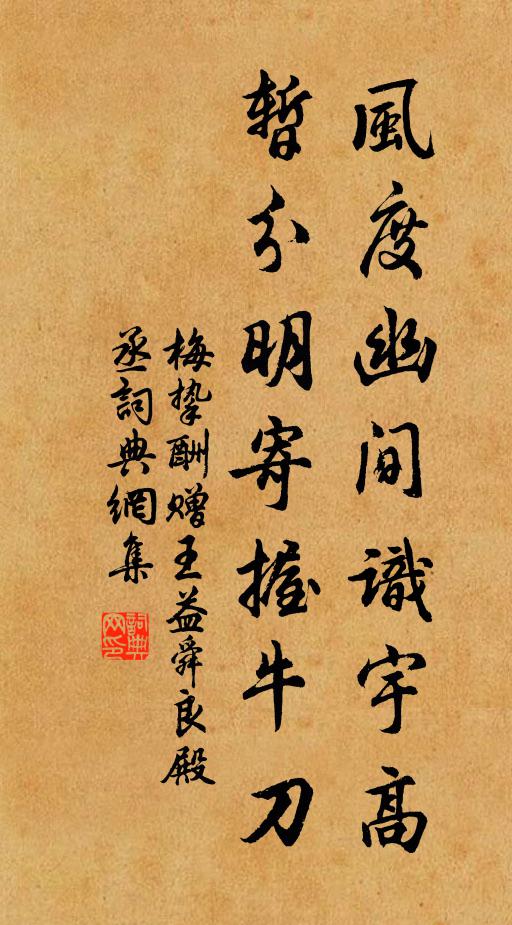 風度幽间識宇高
暫分明寄握牛刀
梅摯酬赠王益舜良殿
丞詞典網集
詞典网印